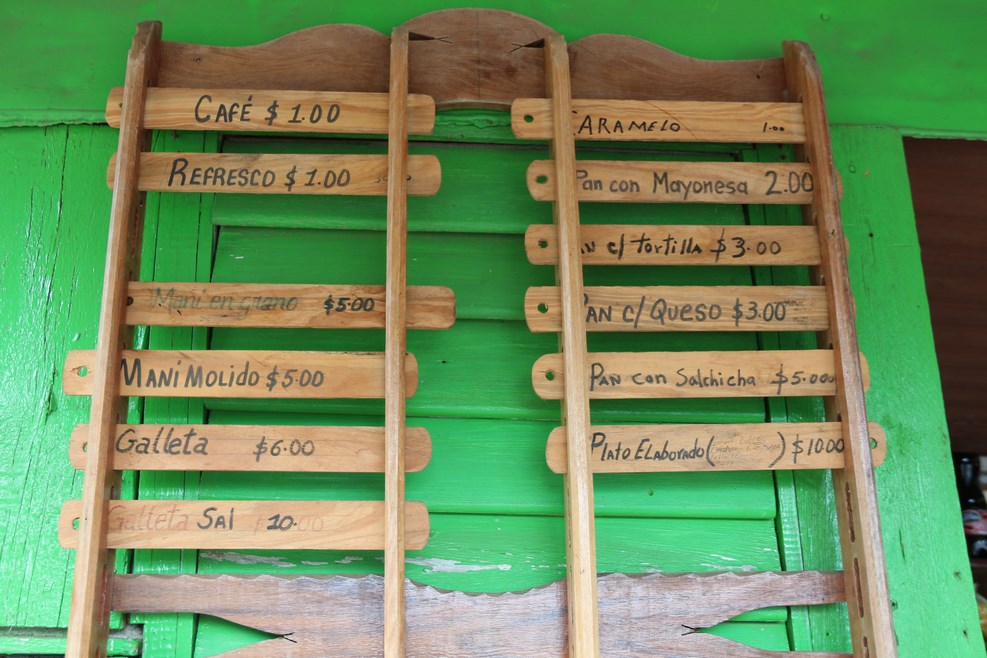 CAFÉ $ 1.00
REFRESCO $ 1.00
Mani en grano $5.00
MANI MOLIDO $5.00
Galleta $6.00
Galleta Sal 10.00
ARAMELO 1.00
Pan con Mayonesa 2.00
AN c/ tortilla $3.00
PAN c/ QUESO $3.00
PAN con Salchicha $5.00
PLATO ELABORADO ( ) $10.00